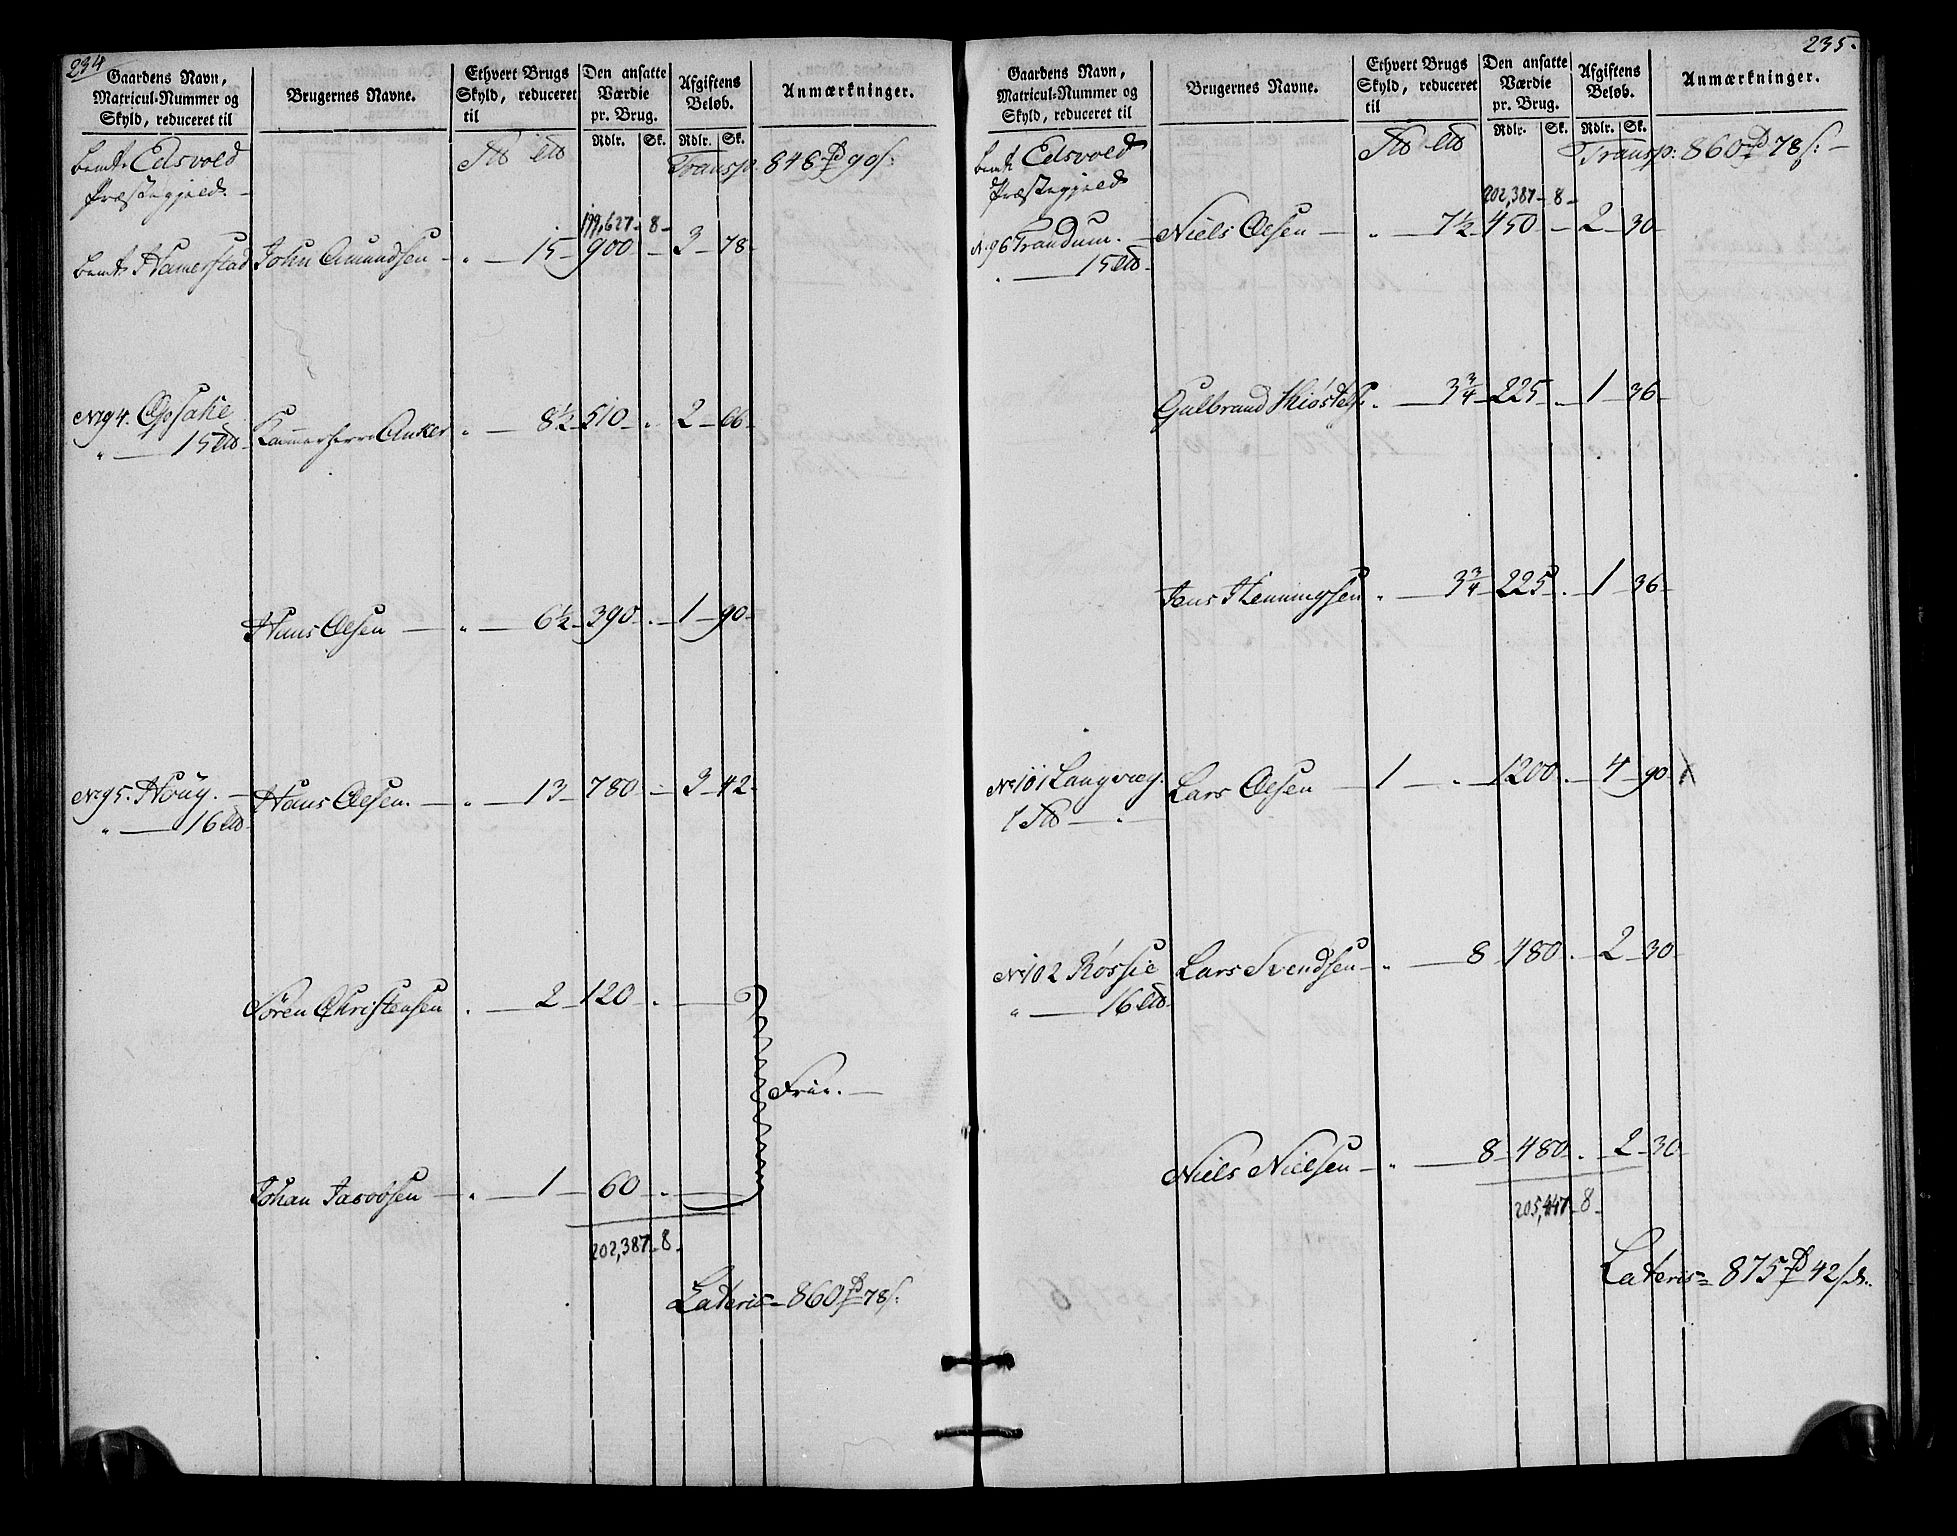 234
Gaardens Navn, Matricul-Nummer og Skyld, reduceret til | Brugernes Navne. | Ethvert Brugs Skyld, reduceret til | Den ansatte Værdie pr. Brug. | Afgiftens Beløb. | Anmærkninger.
Rdlr. | Sk. | Rdlr. | Sk.
bemte Edsvold
Præstegjeld. Transp: 848 90 s:
199,627 - 8 -
bemte Hamerstad John Amundsen - " - 15 - 900 - - 3 - 78 -
N 94. Opsahl Kammerherr Anker " - 8½ - 510 - . 2 - 66 -
" - 15
Hans Olsen - " - 6½ - 390 - . - 1 - 90 -
N 95. Houg. - Hans Olsen. - " - 13 - 780 - - 3 - 42 -
" - 16
Sören Christensen " - 2 - 120 -
Frie. -
Johan Jacobsen - " - 1 - 60 -
202,387 - 8 -
Lateris = 860 78 s:
235.
Gaardens Navn, Matricul-Nummer og Skyld, reduceret til | Brugernes Navne. | Ethvert Brugs Skyld, reduceret til | Den ansatte Værdie pr. Brug. | Afgiftens Beløb. | Anmærkninger.
Rdlr. | Sk. | Rdlr. | Sk.
bemte Edsvold
Præstegjeld Transp: 860 78 s: -
202,387 - 8 -
N. 96 Trandum. - Niels Olsen - " - 7½ - 450 - - 2 - 30 -
" - 15
Gulbrand " - 3¾ - 225 - . - 1 - 36 -
Jens Henningsen " - 3¾ - 225 - . - 1 - 36 -
No 101 Langvæg. Lars Olsen - 1 - " - 1200 - . - 4 - 90 -
1
No 102 Røssie Lars Svendsen - " - 8 480 . - 2 - 30 -
" - 16
Niels Nielsen - " - 8 - 480 - . - 2 - 30 -
205,447 - 8 -
Lateris = 875 42